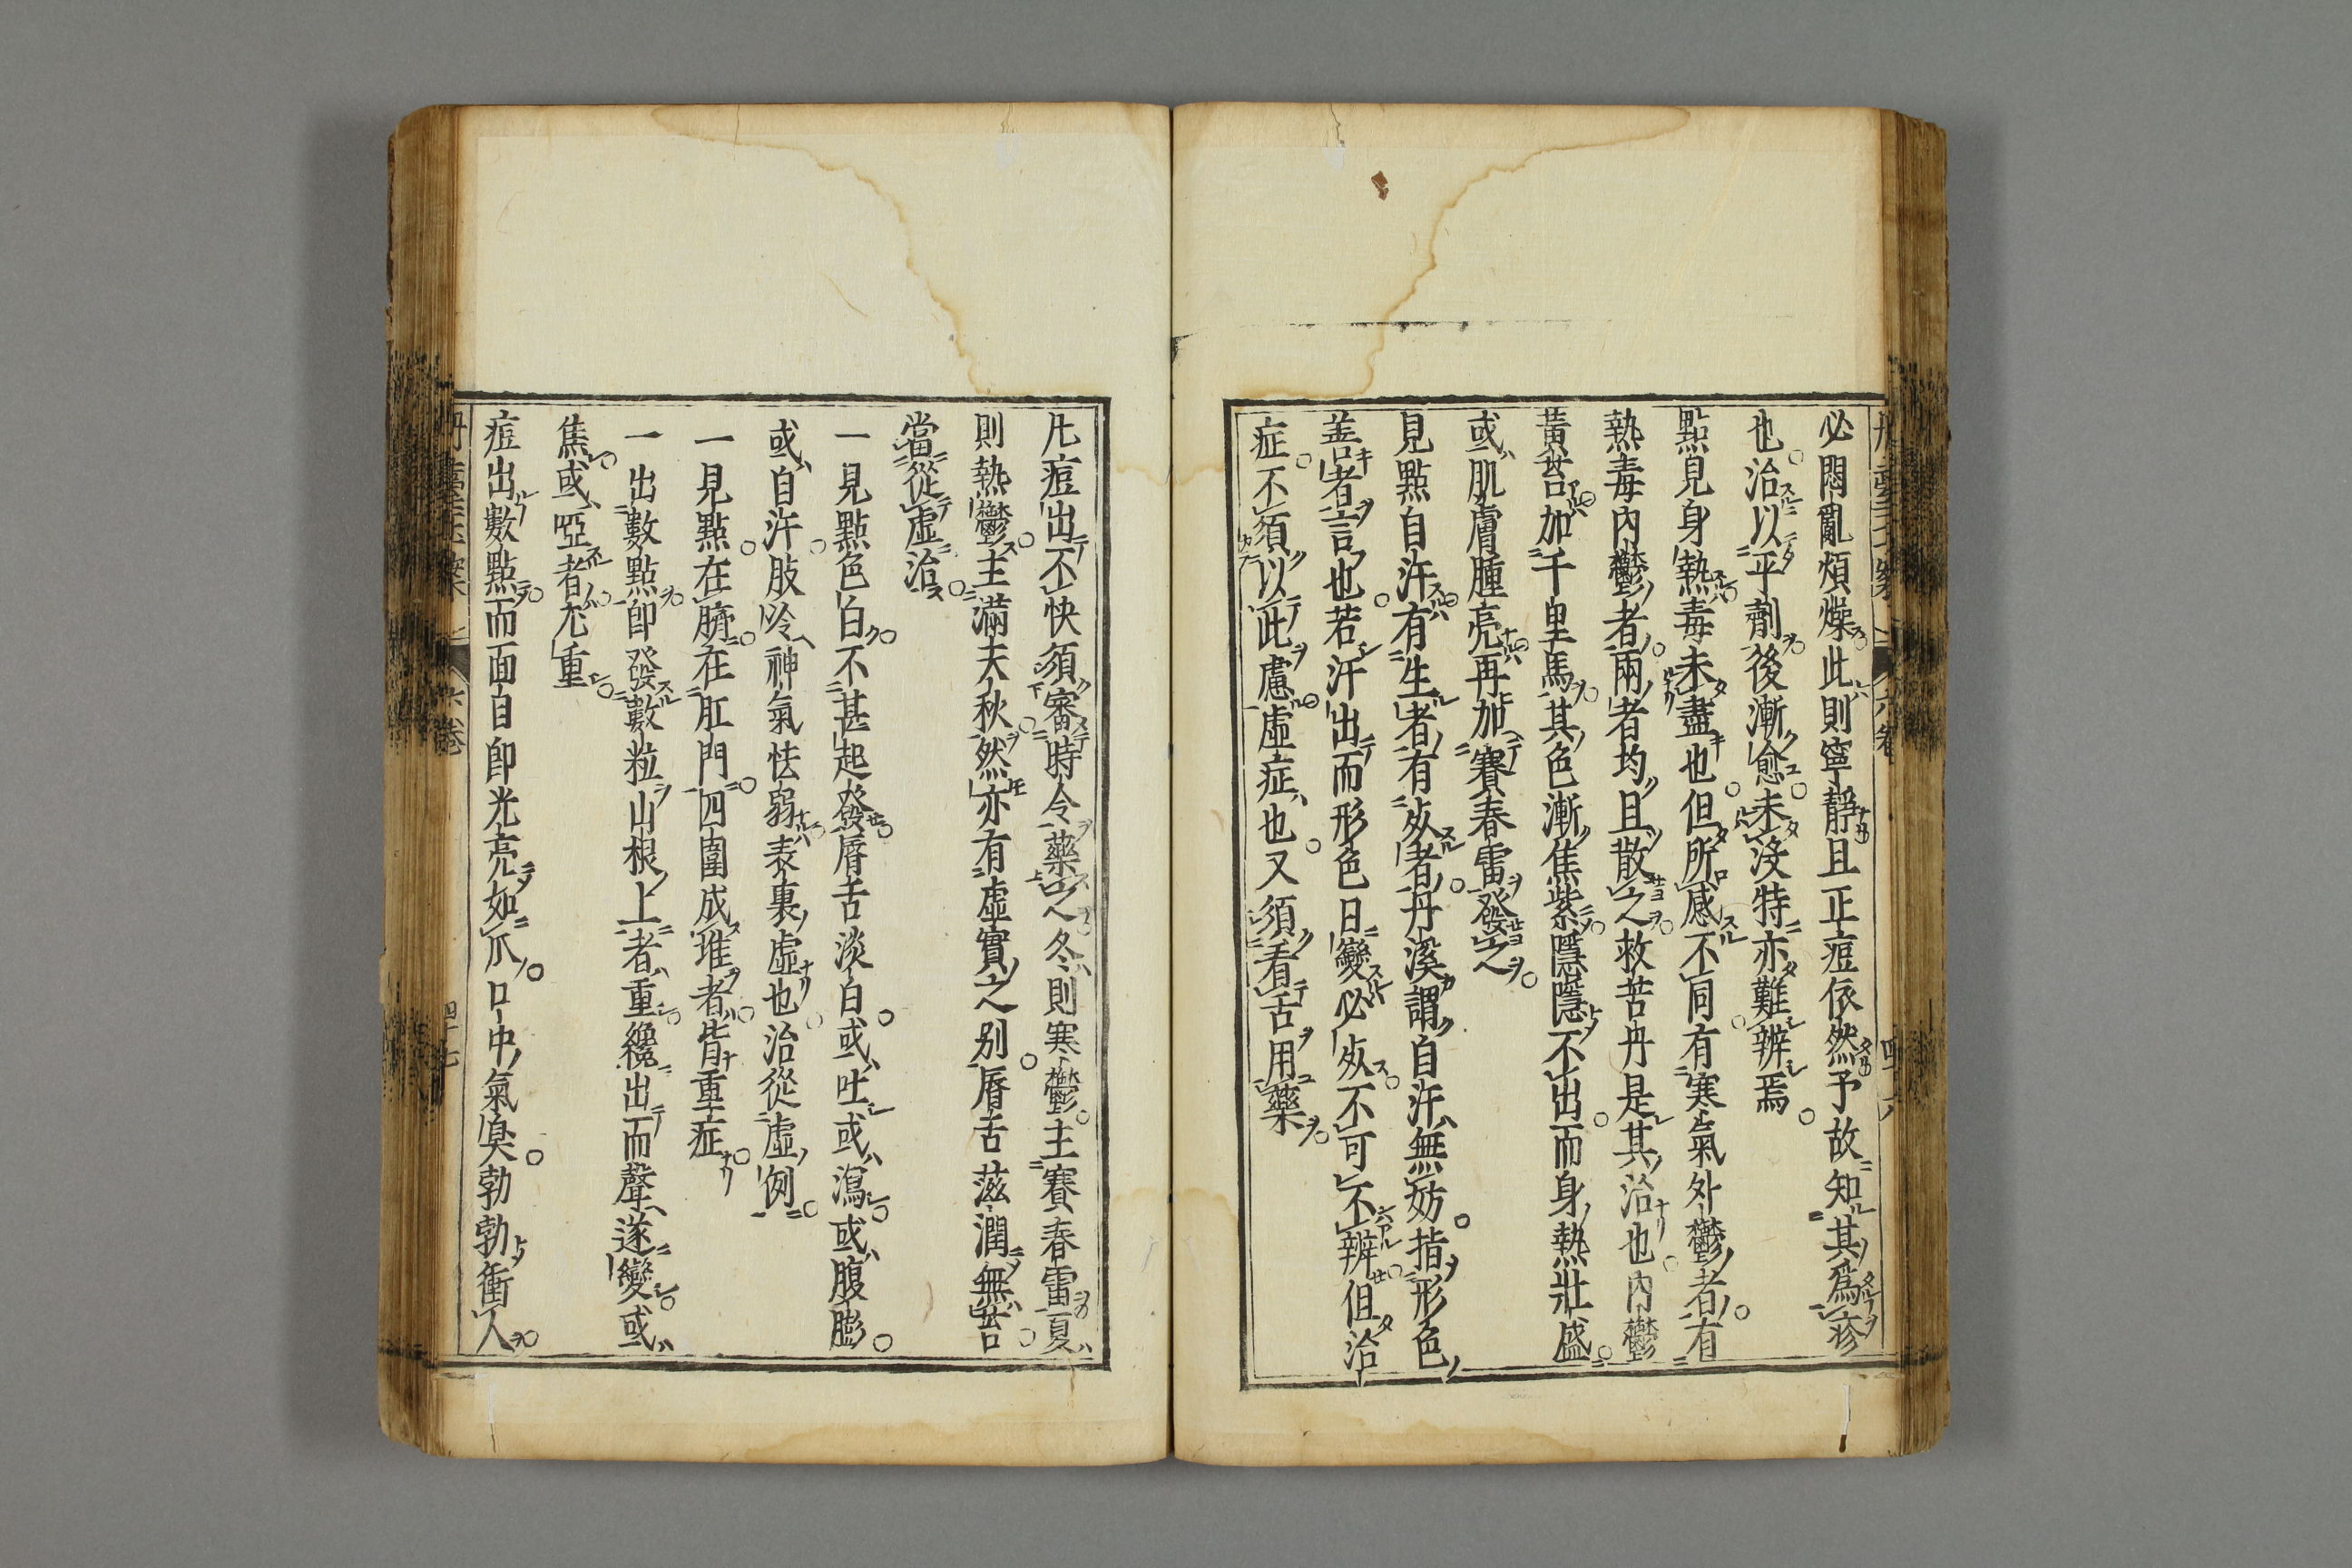 必悶亂煩燥此則寧靜且正痘依然予故知其爲疹
也治以平劑後漸愈未沒特亦難辨焉
點見身熱毒未盡也但所感不同有寒氣外鬱者有
熱毒內鬱者兩者均且散之救苦丹是其治也內鬱
黃芩加千里馬其色漸焦紫隱隱不出而身熱壯盛
或肌膚腫亮再加賽春雷發之
見點自汗有生者有死者丹溪謂自汗無妨指形色
善者言也若汗出而形色日變必死不可不辨但治
症不須以此慮虛症也又須看舌用藥
凡痘出不快須審時令藥之冬則寒鬱主賽春雷夏
則熱鬱主滿天秋然亦有虛實之别唇舌滋潤無苔
當從虛治
一見點色白不甚起發唇舌淡白或吐或瀉或腹膨
或自汗肢冷神氣怯弱表裏虛也治從虛例
一見點在臍在肛門四圍成堆者皆重症
一出數點即發數粒山根上者重纔出而聲遂變或
焦或啞者尤重
痘出數點而面自即光亮如瓜口中氣臭勃勃衝人
六卷
四十七